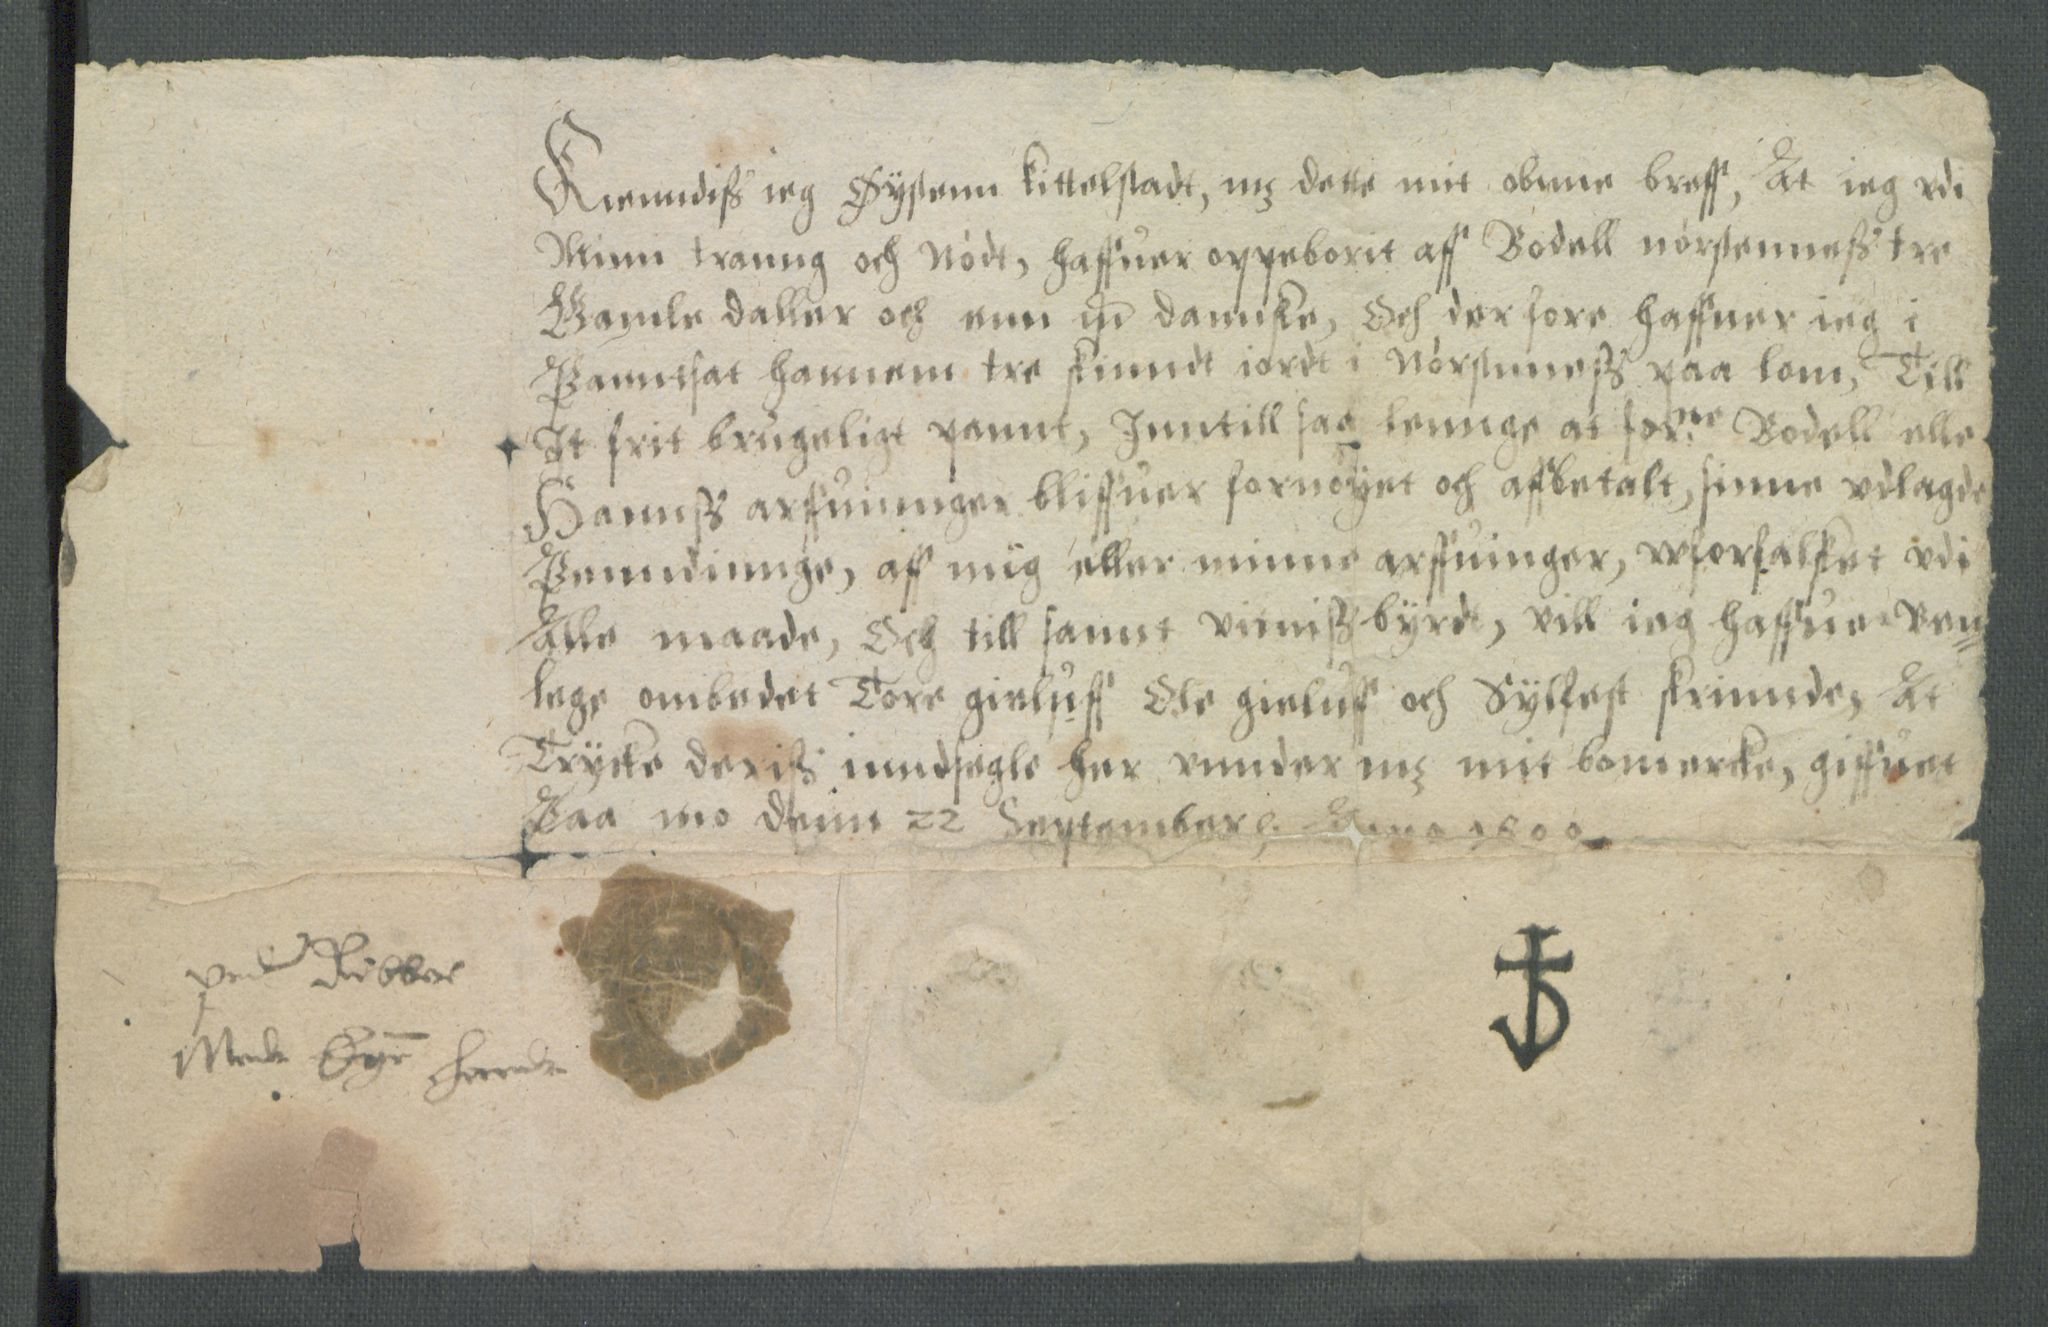 Kienndiß ieg Øystenn kittelstadt, mz dette mit obnne breff, At ieg vdi
Minn tranng och Nødt, haffuer oppeborit aff Bodell nørstenneß tre
Gamle daller och enn mꝷ dannske, Och der fore haffuer ieg i
Panntsat hannem tre skinndt iordt i Nørstnneß paa lom, Till
It frit brugeligt pannt, Inntill saa lennge at for:ne Bodell elle
Hannß arffuinnger bliffuer fornøyet och affbetalt, sinne vdlagde
Penndinnge, aff mig eller minne arffuinger, wforfalsket vdi
Alle maade, Och till sannt vitniß byrdt, vill ieg haffue Ven=
lege ombedet Tore gieluff Ole gieluff och Sylfest skrinnde, At
Trycke deriß inndsegle her vnnder mz mit bomercke, giffuet
Paa mo denn 22 Septembers. Anno 1600
peder Ribber
Mede Egn Haand